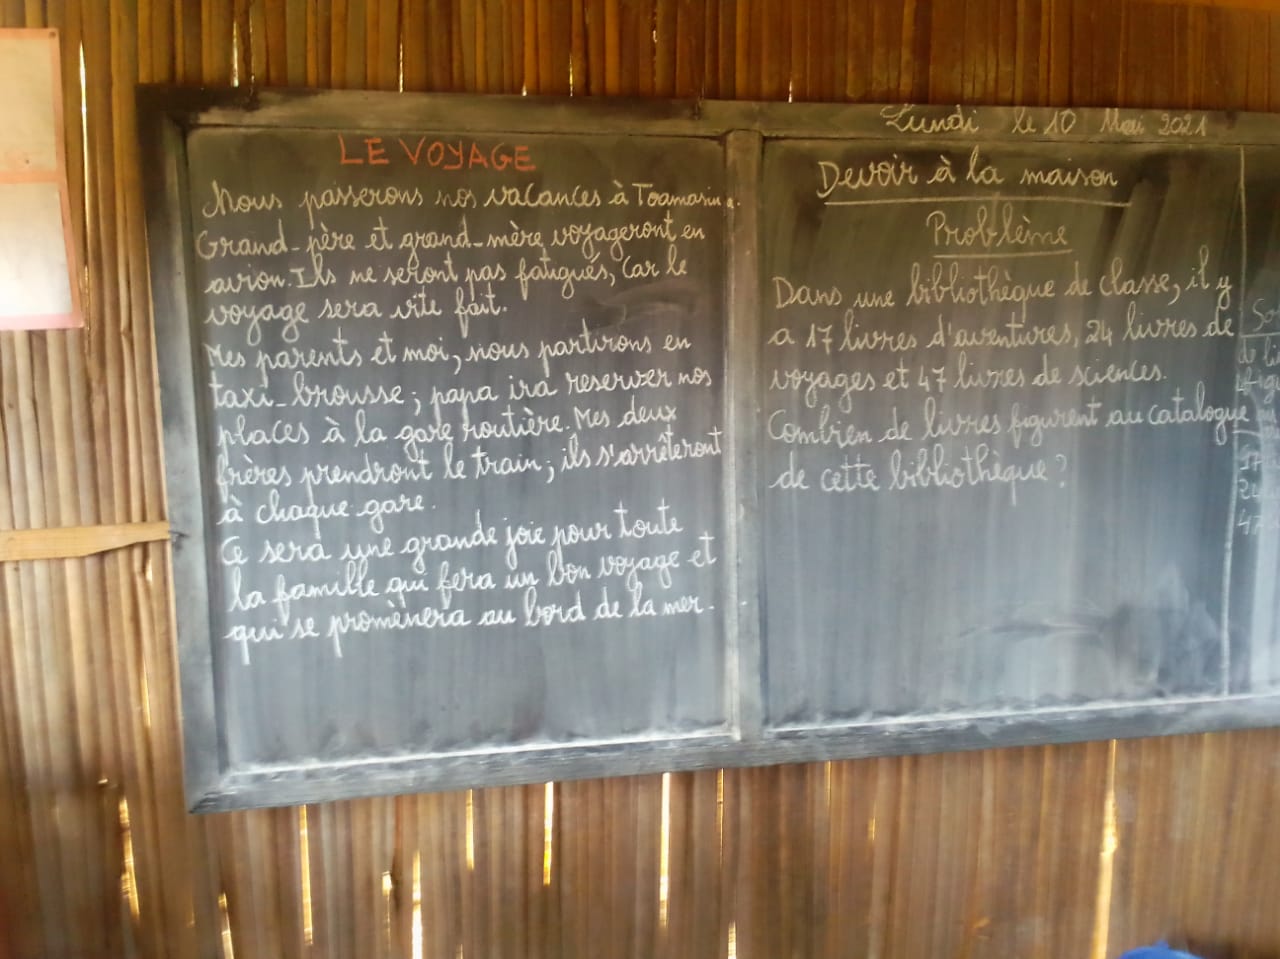 LE VOYAGE
Nous passerons nos vacances à Toamasina.
Grand-père et grand-mère voyageront en
avion. Ils ne seront pas fatigués, Car le
voyage sera vite fait.
Mes parents et moi, nous partirons en
taxi-brousse ; papa ira reserver nos
places à la gare routière. Mes deux
frères prendront le train ; ils s'arrêteront
à chaque gare.
Ce sera une grande joie pour toute
la famille qui fera un bon voyage et
qui se promènera au bord de la mer.
Lundi le 10 Mai 2021
Devoir à la maison
Problème
Dans une bibliothèque de classe, il y
a 17 livres d'aventures, 24 livres de
voyages et 47 livres de sciences.
Combien de livres figurent au catalogue
de cette bibliothèque ?